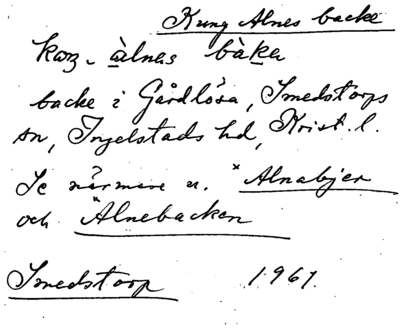 Kung Alnes backe
kɔŋ- àlnas bàkɐ
backe i Gårdlösa, Smedstorps
sn, Ingelstads hd, Krist. l.
Se närmare u. *Alnabjer
och *Alnebacken
Smedstorp 1961.